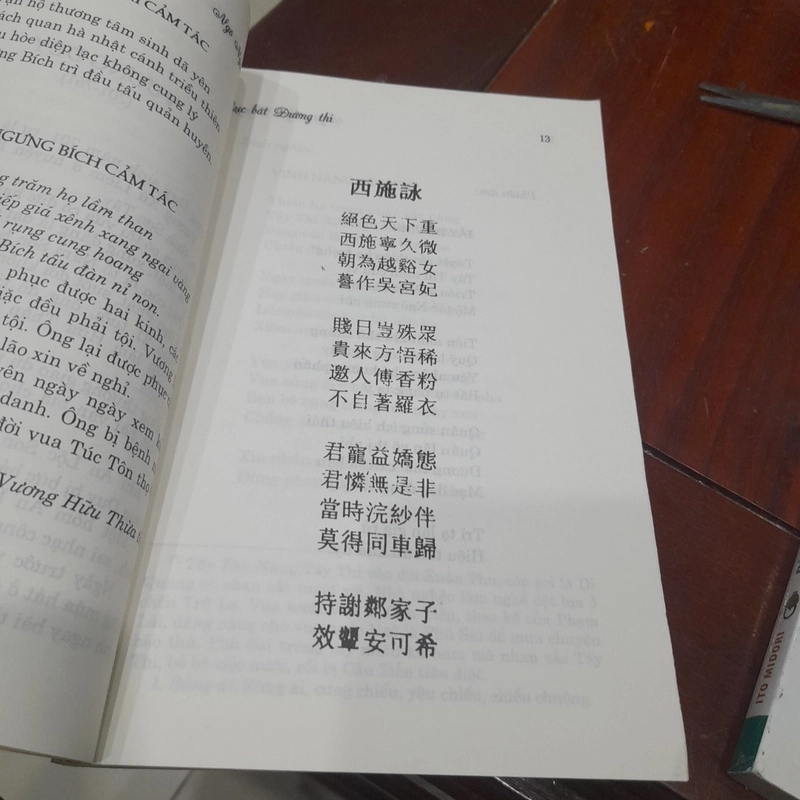 H CẢM TÁC
họ thương tâm sinh dã yên
ách quan hà nhật cánh triều thiên
hòe diệp lạc không cung lý
Bích trì đầu tấu quản huyền.
NGƯNG BÍCH CẢM TÁC
trăm họ lầm than
giá xênh xang ngai vàng
rụng cung hoang
Bích tấu đàn nỉ non.
phục được hai kinh, các
đều phải tội. Vương
tội. Ông lại được phục
lão xin về nghỉ.
ngày ngày xem
danh. Ông bị bệnh
đời vua Túc Tôn thọ
Vương Hữu Thừa
bát Đường thi
13
西施詠
絕色天下重
西施寧久微
朝為越谿女
暮作吳宮妃
賤日豈殊眾
貴來方悟稀
邀人傅香粉
不自著羅衣
君寵益嬌態
君憐無是非
當時浣紗伴
莫得同車歸
持謝鄰家子
效顰安可希
ITO MIDORI